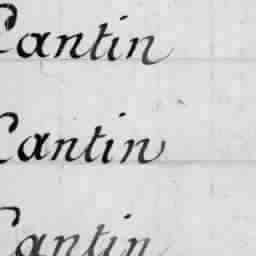 Cantin
Cantin
Cantin